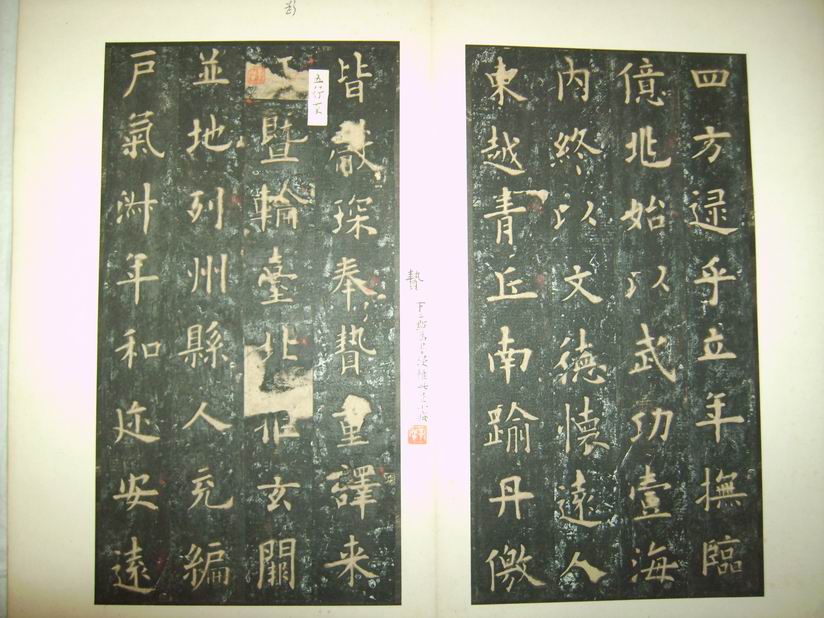 四方逮乎立年撫臨
億兆始以武功壹海
內終以文德懷遠人
東越青丘南踰丹儌
皆獻琛奉贄重譯来
暨輪臺北玄闕
並地列州縣人充編
戶氣淋年和迩安遠
五行
贄